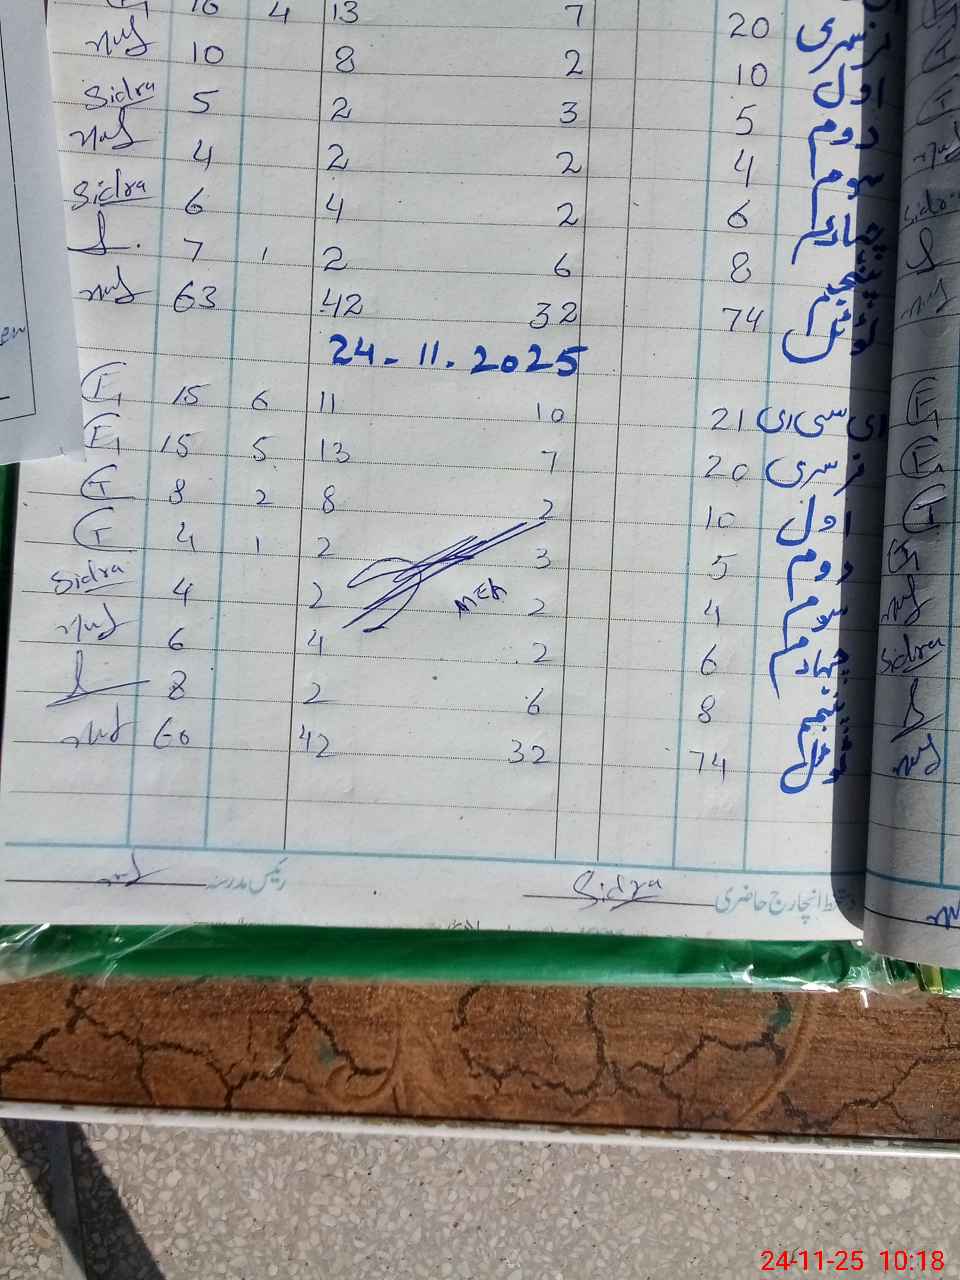 16 4 13 7 20 نرسری
10 8 2 10 اول
Sidra 5 2 3 5 دوم
4 2 2 4 سوم
Sidra 6 4 2 6 چہارم
7 1 2 6 8 پنجم
63 42 32 74 ٹوٹل
24-11.2025
15 6 11 10 21 ای سی ای
15 5 13 7 20 نرسری
8 2 8 2 10 اول
4 1 2 3 5 دوم
Sidra 4 2 2 4 سوم
6 4 2 6 چہارم
8 2 6 8 پنجم
60 42 32 74 ٹوٹل
MEA
Sidra
دستخط انچارج حاضری Sidra رئیس مدرسہ
24-11-25 10:18